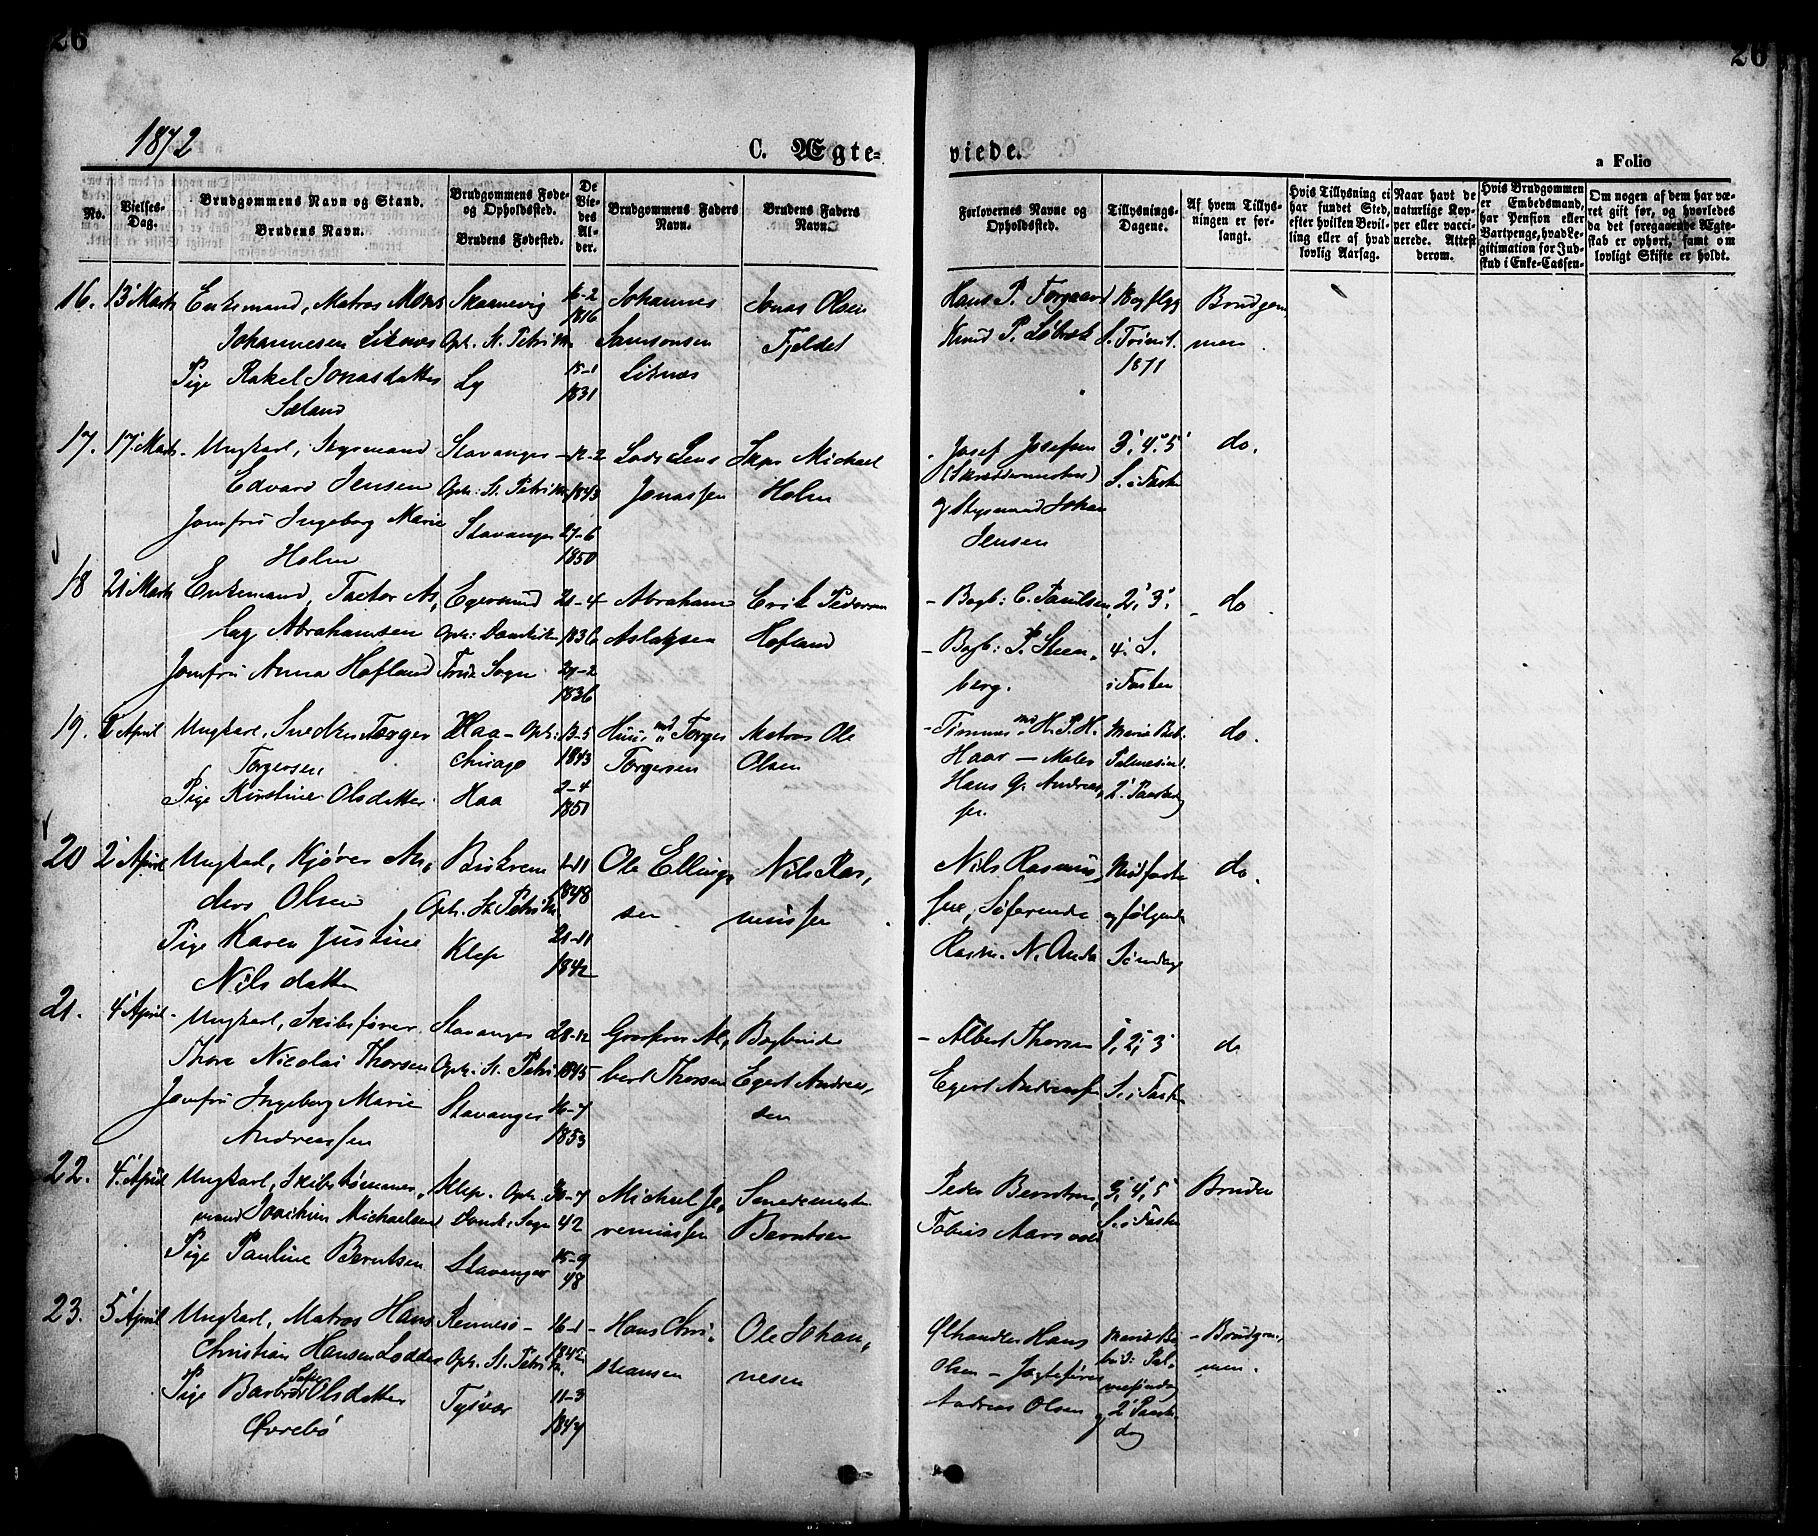 26
26
1872
C. Ægte-
viede.
a Folio
No.
Vielses-Dag.
Brudgommens Navn og Stand.
Brudens Navn.
Brudgommens Føde- og Opholdssted.
Brudens Fødested.
De Viedes Alder.
Brudgommens Faders Navn.
Brudens Faders Navn.
Forlovernes Navne og Opholdssted.
Tillysnings-Dagene.
Af hvem Tillysningen er forlangt.
Hvis Tillysning ei har fundet Sted, efter hvilken Bevilling eller af hvad lovlig Aarsag.
Naar havt de naturlige Kopper eller vaccinerede. Attest derom.
Hvis Brudgommen er Embedsmand, har Pension eller Vartpenge, hvad Legitimation for Indskud i Enke-Cassen.
Om nogen af dem har været gift før, og hvorledes da det foregaaende Ægteskab er ophørt, samt om lovligt Skifte er holdt.
16. 13 Marts Enkemand, Matros Skaanevig 16-2 Johannes Jonas Olsen Hans P. Torgaard Brudgom
Johannesen Litnæs Oph. St. Petri 1816 Samsonsen Fjeldet Knud P. S. Trinit. men.
Pige Rakel Jonasdatter Ly 15-1 Litnæs 1871
Sæland 1831
17. 17 Marts Ungkarl, Styrmand Stavanger 12-2 Lods Jens Skpr Michael Josef Josefsen 3, 4, 5 do.
Edvard Jensen Oph: St. Petri 1843 Jonassen Holm (Skræddermester) S. i Faste
Jomfru Ingeborg Marie Stavanger 27-6 og Styrmand Johan
Holm 1850 Jensen
18 21 Marts Enkemand, Factor As, Egersund 21-4 Abraham Erik Pedersen Bogb: C. Paulsen, 2, 3, do
lag Abrahamsen Oph: 1836 Aslaksen Hofland Bogb: P. Steen, 4. S.
Jomfru Anna Hofland Sogn 27-2 berg. i Fasten
1836
19. 2 April Ungkarl, Snedker Torger Haa - Oph: 13-5 Huusmd Torger Matros Ole Tømmermd H. P. H. Mariæ Beb. do.
Torgersen Chicago 1843 Torgersen Olsen Haar - Maler Palmesønd.
Pige Kirstine Olsdatter Haa 2-4 Hans G. Andreas, 2 Paaskedag
1851 sen.
20 2 April Ungkarl, Kjører An, Birkrem 1-11 Ole Ellings Nils Ras, Nils Rasmus, Midfaste do.
ders Olsen Oph. St. Petri 1848 sen mussen sen, Søfarende og følgende
Pige Karen Justine Klep 21-11 Rasm. N. Anda Søndag
Nilsdatter 1842
21. 4 April Ungkarl, Skibsfører Stavanger 28-12 Al, Bogbinder Albert Thorsen 1, 2, 3 do
Thore Nicolai Thorsen Oph: St. Petri 1845 bert Thorsen Egert Andrea, Egert Andreassen S. i Faste
Jomfru Ingeborg Marie Stavanger 16-7 sen
Andreassen 1853
22. 4 April Ungkarl, Skibstømmer, Klep. Oph: 30-7 Michael Je, Snedkermester Peder Berntsen, 3, 4, 5 Bruden
mand Joachim Michaelsen Domk: Sogn 42 remiassen Berntsen Tobias S. i Faste
Pige Pauline Berntsen Stavanger 15-9
48
23. 5 April Ungkarl, Matros Hans Rennesø 16-1 Hans Chri, Ole Johan, Ølhandler Hans Mariæ Be Brudgom,
Christian Hansen Lodden Oph. St. Petri 1842 stiansen nesen Olsen - Jagtefører bud: Pal, men.
Pige Barbro Sofie Olsdatter Tysvær 11-3 Andreas Olsen mesøndag
Øvrebø 1844 og 2 Paaske
dag